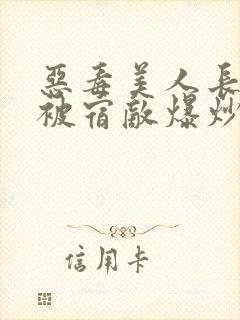 惡毒美人長
被宿敵爆炒
信用卡